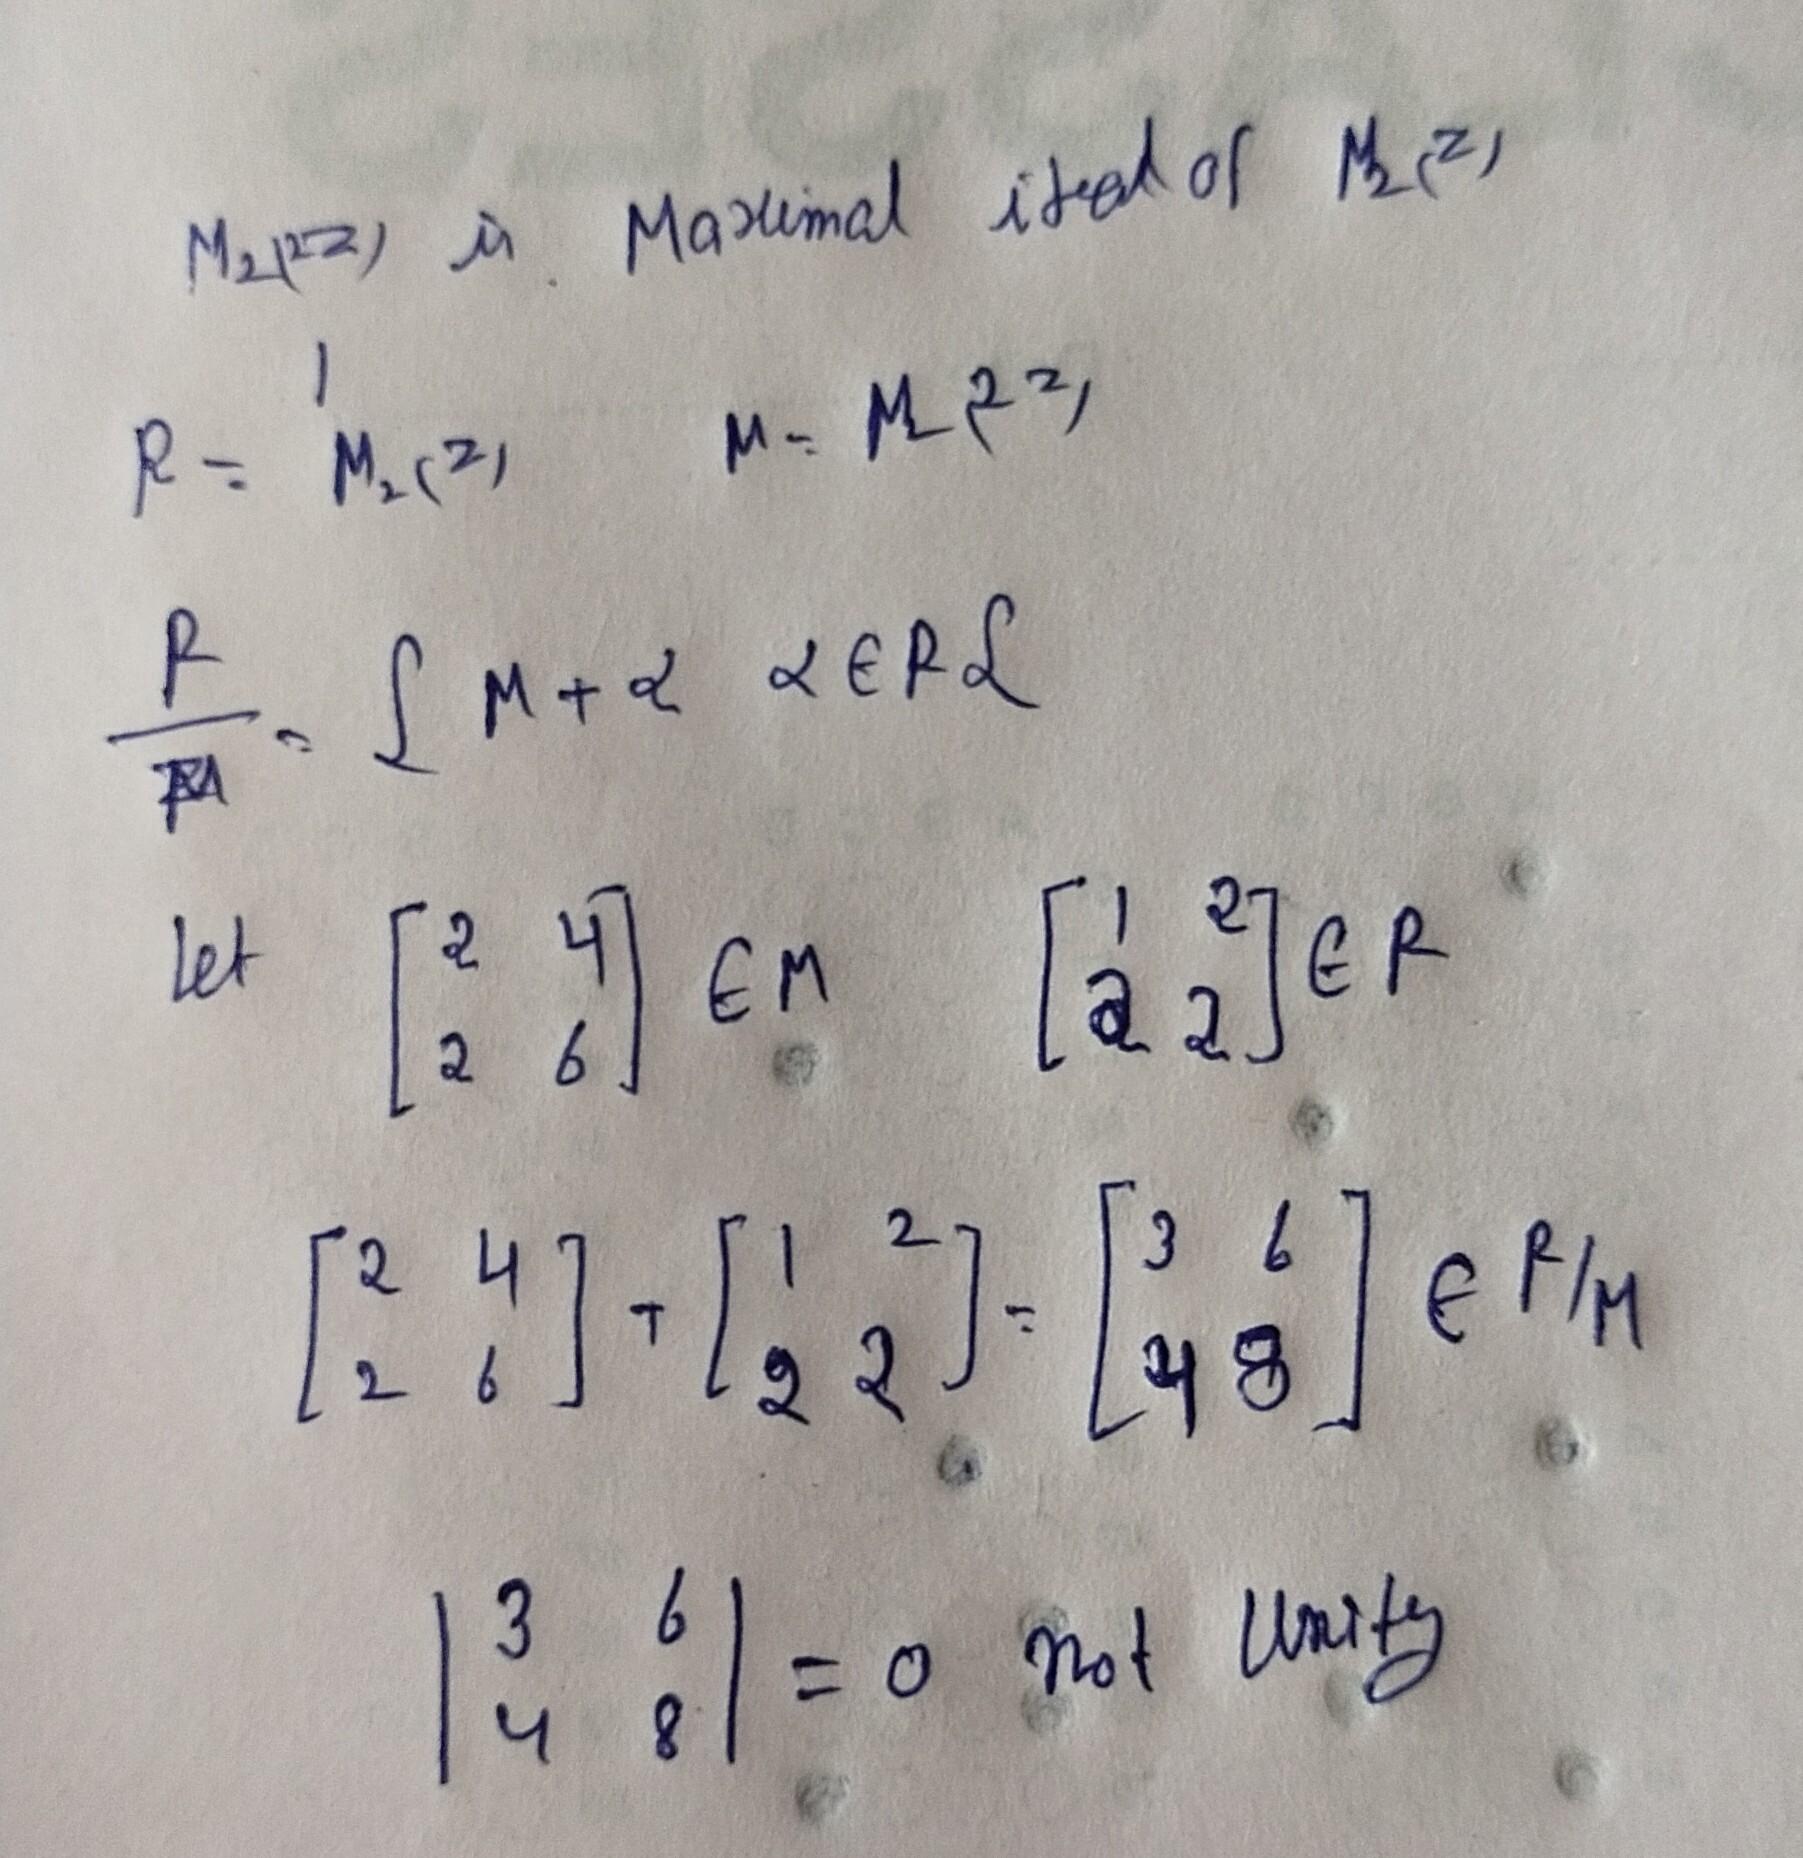 M₂(2Z) is Maximal ideal of M₂(Z)
R = M₂(Z) M = M₂(2Z)
R/M = { M + α α ∈ R }
Let [2 4; 2 6] ∈ M [1 2; 2 2] ∈ R
[2 4; 2 6] + [1 2; 2 2] = [3 6; 4 8] ∈ R/M
|3 6; 4 8| = 0 not Unity